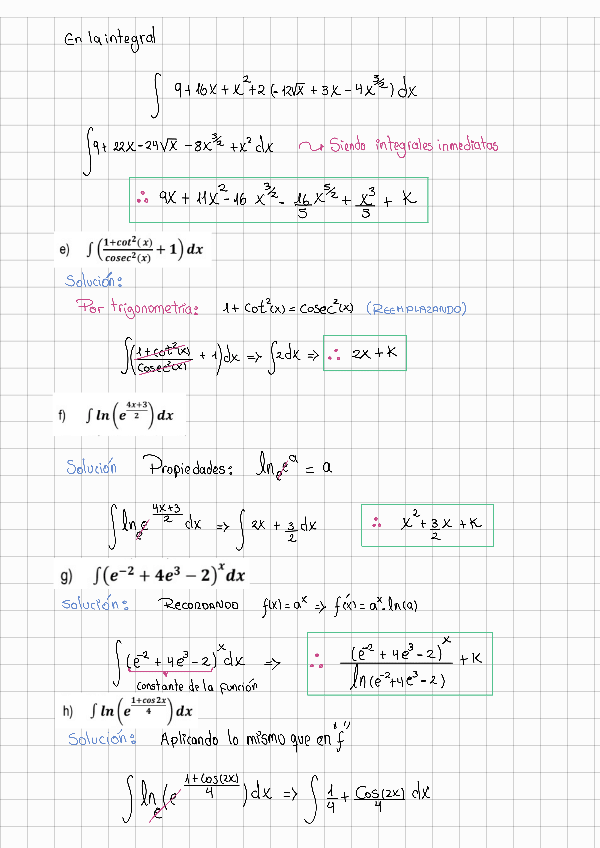 En la integral
∫ 9+16x+x²+2(-12√x + 3x - 4x^{3/2}) dx
∫ 9+22x-24√x -8x^{3/2} +x² dx ⤳ Siendo integrales inmediatas
∴ 9x + 11x² - 16 x^{3/2} - 16/5 x^{5/2} + x³/3 + K
e) ∫ ((1+cot²(x))/(cosec²(x)) + 1) dx
Solución:
Por trigonometría: 1 + Cot²(x) = Cosec²(x) (REEMPLAZANDO)
∫ ((1+cot²(x))/(Cosec²(x)) + 1) dx => ∫ 2dx => ∴ 2x + K
f) ∫ ln (e^{(4x+3)/2}) dx
Solución Propiedades: ln_e e^a = a
∫ ln_e e^{(4x+3)/2} dx => ∫ 2x + 3/2 dx ∴ x² + 3/2 x + K
g) ∫(e⁻² + 4e³ − 2)^x dx
Solución: RECORDANDO f(x) = a^x => f'(x) = a^x · ln(a)
∫ (e⁻² + 4e³ - 2)^x dx => ∴ (e⁻² + 4e³ - 2)^x / ln(e⁻²+4e³-2) + K
Constante de la función
h) ∫ ln (e^{(1+cos2x)/4}) dx
Solución: Aplicando lo mismo que en "f"
∫ ln_e (e^{(1+Cos(2x))/4}) dx => ∫ 1/4 + Cos(2x)/4 dx